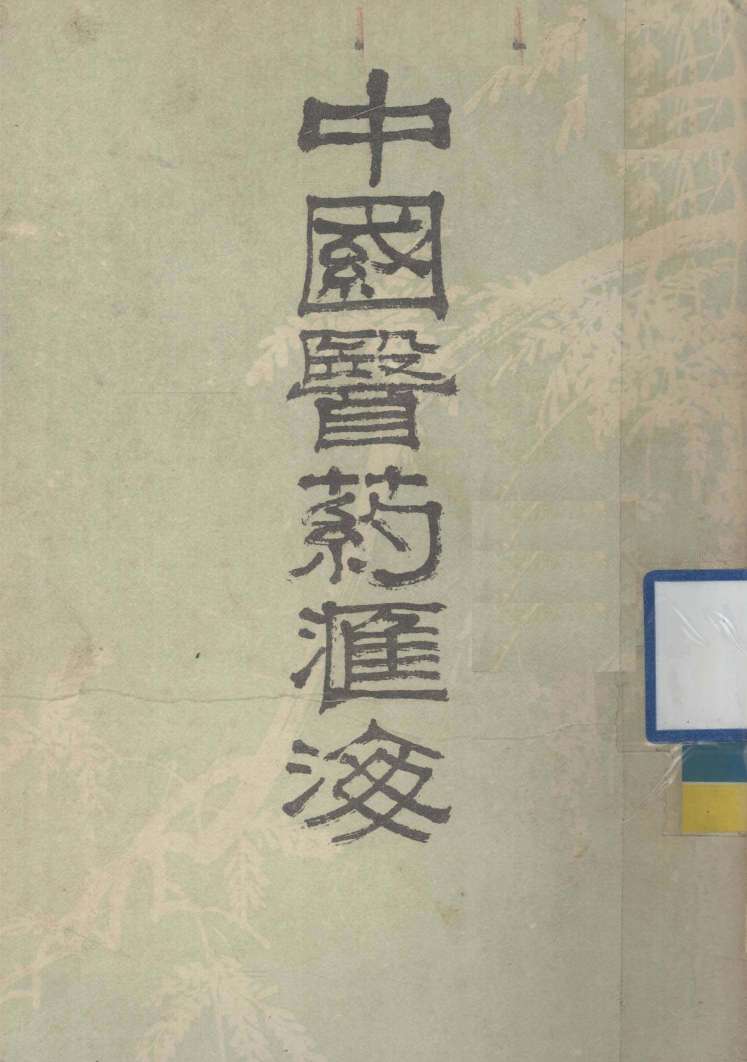 中國醫药滙海